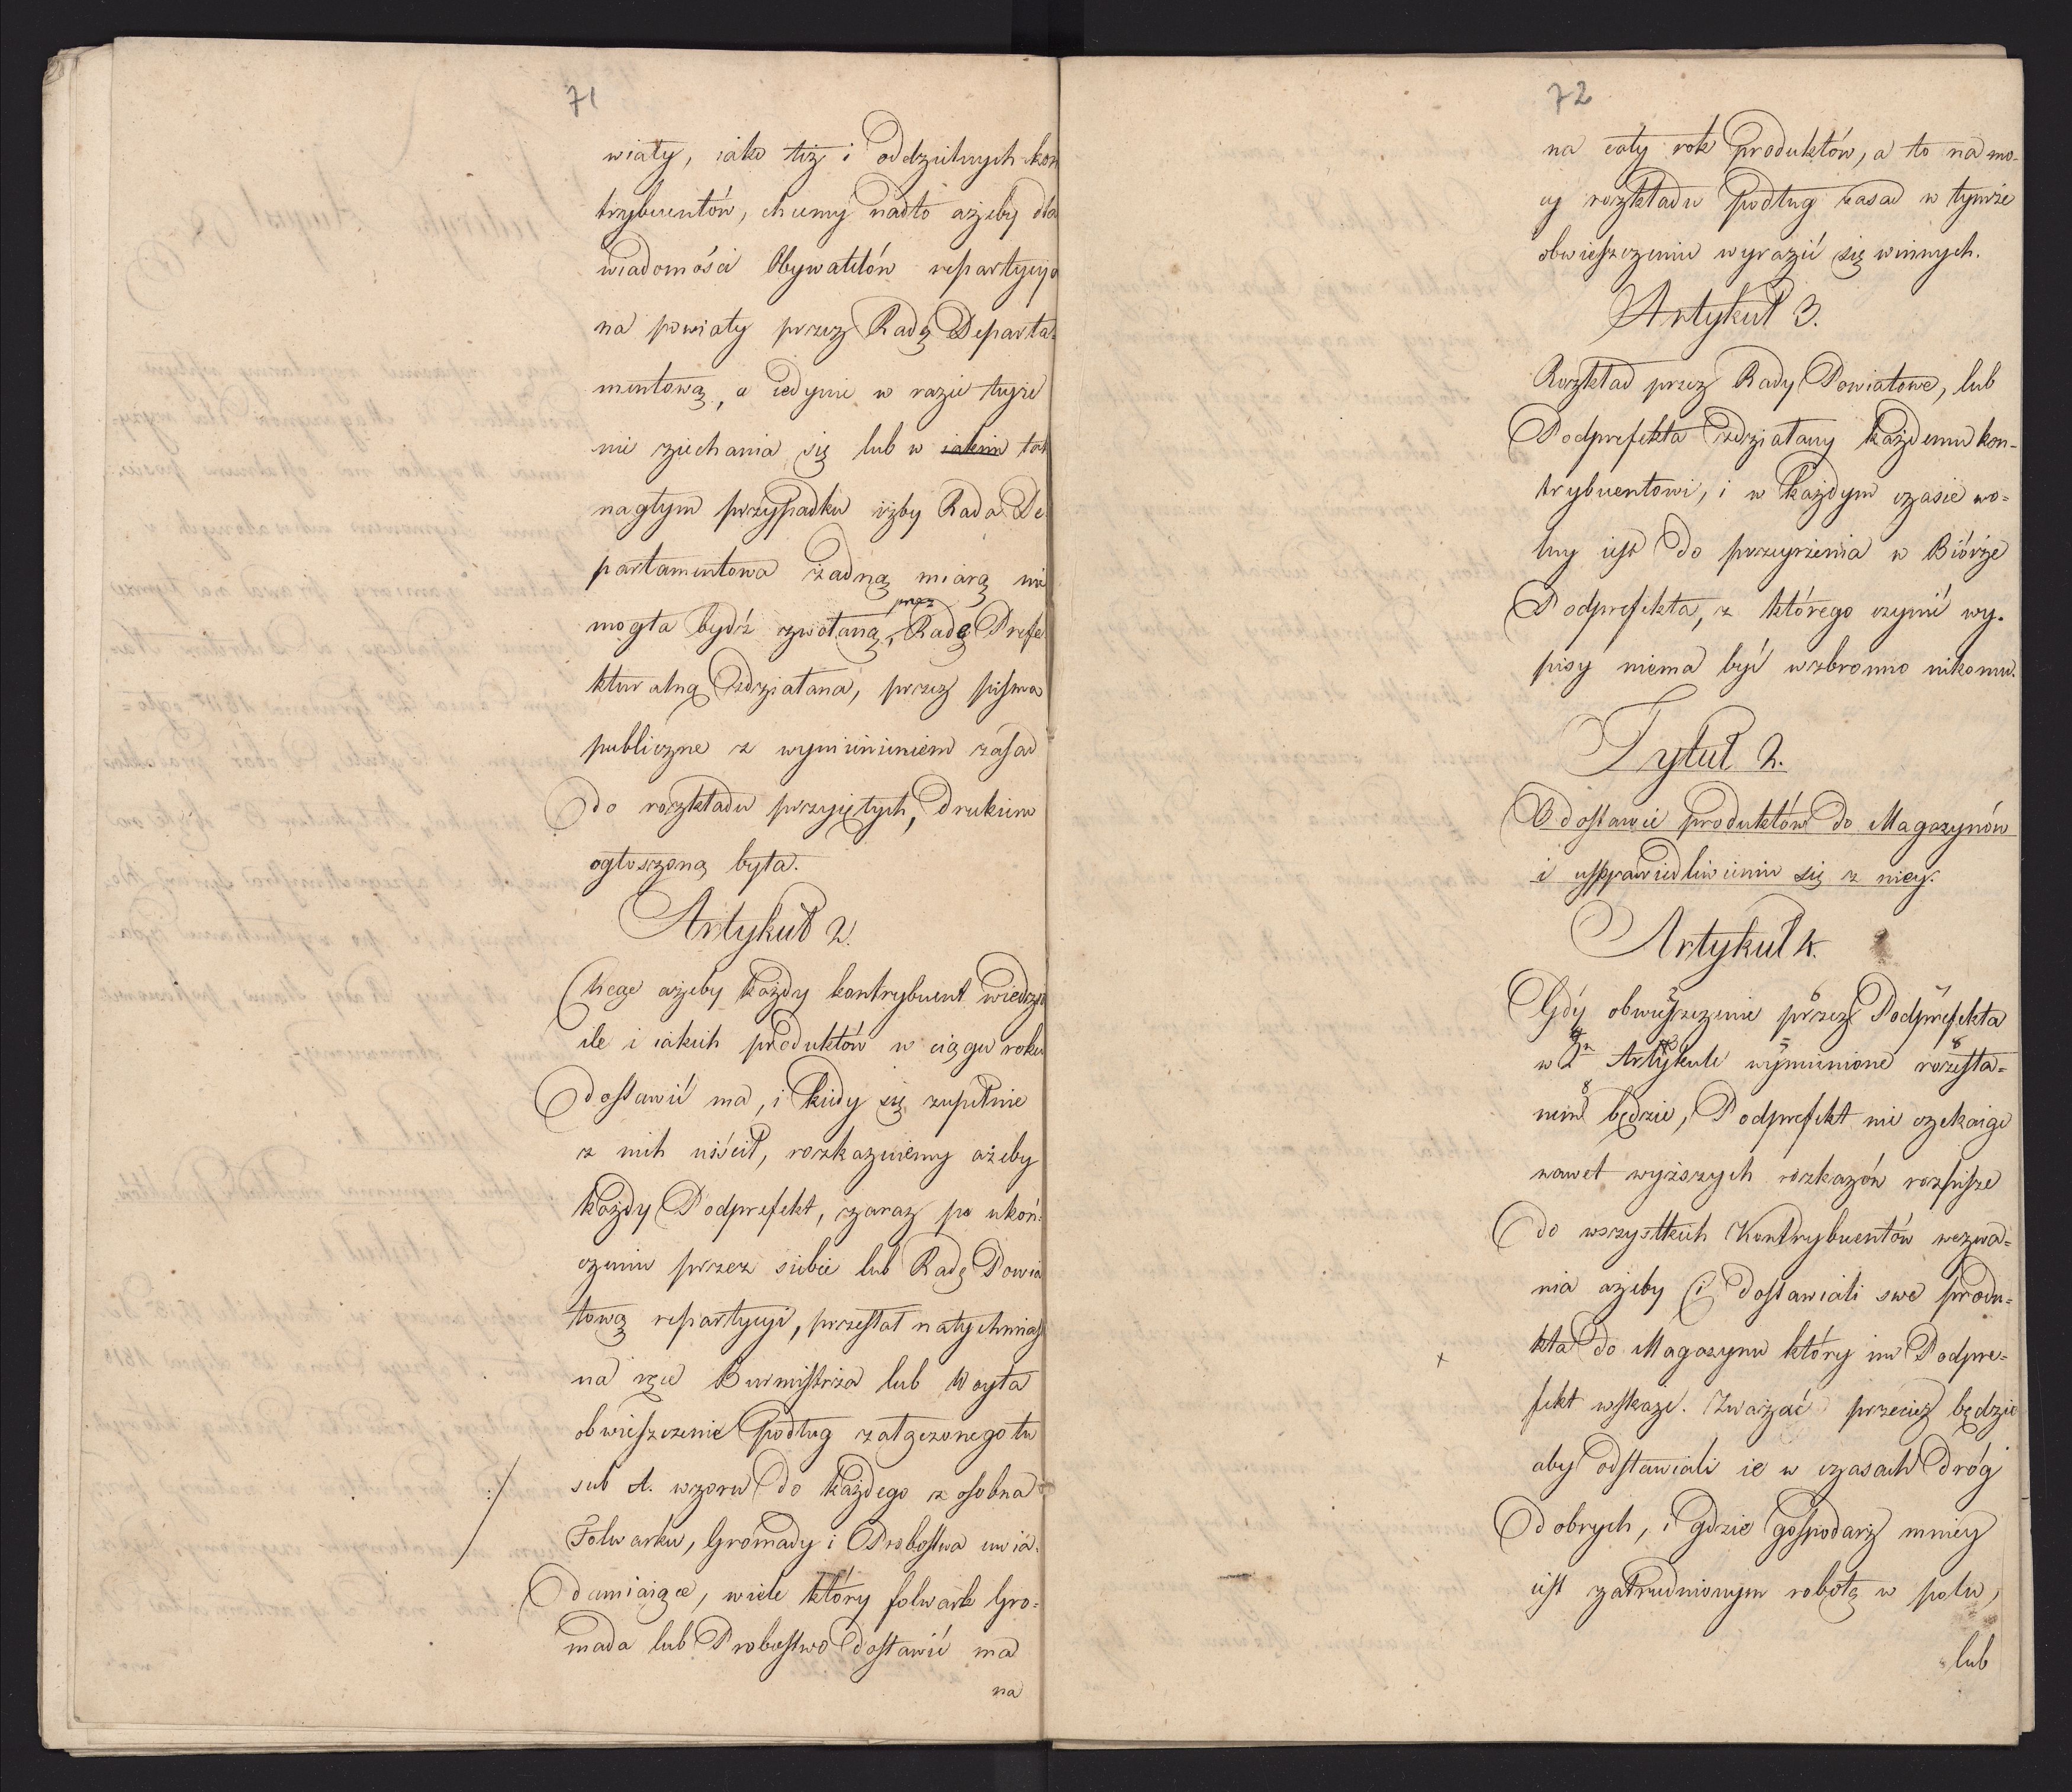 71
wiaty, iako też i oddzielnych kon
trybuentów, chcemy nadto ażeby dla
wiadomości Obywatelów repartycyja
na powiaty przez Radę Departa=
mentową, a iedynie w razie teyże
nie ziechania się lub w iakim tak
nagłym przypadku iżby Rada De=
partamentowa żadną miarą nie
przez
mogła bydź zwołaną, Radę Prefe
kturalną zdziałana, przez pisma
publiczne z wymienieniem zasad
do rozkładu przyiętych, drukiem
ogłoszoną była.
Artykuł 2.
Chcąc ażeby każdy kontrybuent wiedział
ile i iakich produktów w ciągu roku
dostawić ma, i kiedy się zupełnie
z nich uiścił, rozkazuiemy ażeby
każdy Podprefekt, zaraz po ukoń=
czeniu przez siebie lub Radę Powia
tową repartycyi, przesłał natychmiast
na ręce Burmistrza lub Woyta
obwieszczenie podług załączonego tu
sub A. wzoru do każdego z osobna
Folwarku, Gromady i Probostwa uwia=
damiaiące, wiele który folwark Gro=
mada lub Probostwo dostawić ma
na
72
na cały rok produktów, a to na mo=
cy rozkładu podług zasad w tymże
obwieszczeniu wyrazić się winnych.
Artykuł 3.
Rozkład przez Rady Powiatowe, lub
Podprefekta zdziałany każdemu kon=
trybuentowi, i w każdym czasie wo=
lny iest do przeyrzenia w Biórze
Podprefekta, z którego czynić wy=
pisy niema być wzbronno nikomu.
Tytuł 2.
O dostawie produktów do Magazynów
i usprawiedliwieniu się z niey.
Artykuł 4.
Gdy obwieszczenie przez Podprefekta
w 2m Artykule wymienione rozesła=
nem będzie, Podprefekt nie czekaiąc
nawet wyższych rozkazów rozpisze
do wszystkich Kontrybuentów wezwa=
nia ażeby Ci dostawiali swe produ=
kta do Magazynu który im Podpre=
fekt wskaże. Zważać przecież będzie
aby odstawiali ie w czasach dróg
dobrych, i gdzie gospodarz mniey
iest zatrudnionym robotą w polu,
lub